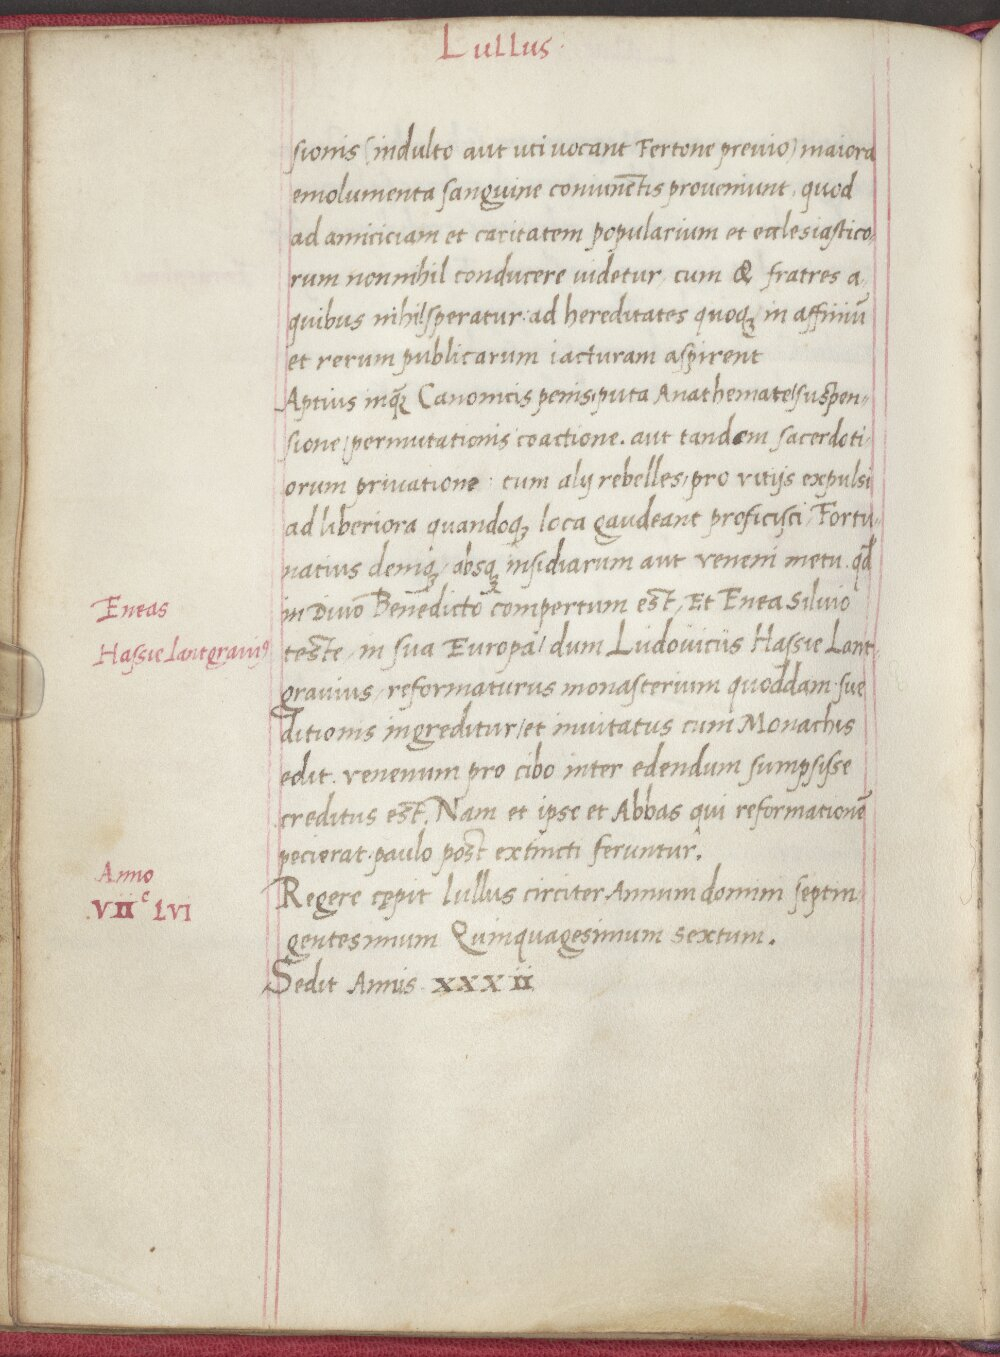 Lullus.
sionis (indulto aut uti uocant Fertone preuio) maiora
emolumenta sanguine coniunētis proueniunt, quod
ad amiciciam et caritatem popularium et ecclesiastico,
rum nonnihil conducere uidetur, cum & fratres a,
quibus nihil speratur: ad hereditates quoqꝫ in affiniū
et rerum publicarum iacturam aspirent
Aptius inqꝫ Canonicis penis, puta Anathemate/suspen-
sione/permutationis coactione. aut tandem sacerdoti-
orum priuatione: cum alij rebelles, pro vitijs expulsi
ad liberiora quandoqꝫ loca gaudeant proficisci, Fortu-
natius deniqꝫ, absqꝫ insidiarum aut veneni metu. qd̄
Eneas
in Diuo Benedicto compertum est, Et Enea Siluio
Hassie Lantgrauiꝰ
teste, in sua Europa/ dum Ludouicus Hassie Lant-
grauius, reformaturus monasterium quoddam sue
ditionis ingreditur/et inuitatus cum Monachis
edit. venenum pro cibo inter edendum sumpsisse
creditus est. Nam et ipse et Abbas qui reformationē
pecierat. paulo post extincti feruntur.
Anno
VIIᶜ LVI
Regere cępit lullus circiter Annum domini septin
gentesimum Quinquagesimum sextum.
Sedit Annis. XXXII